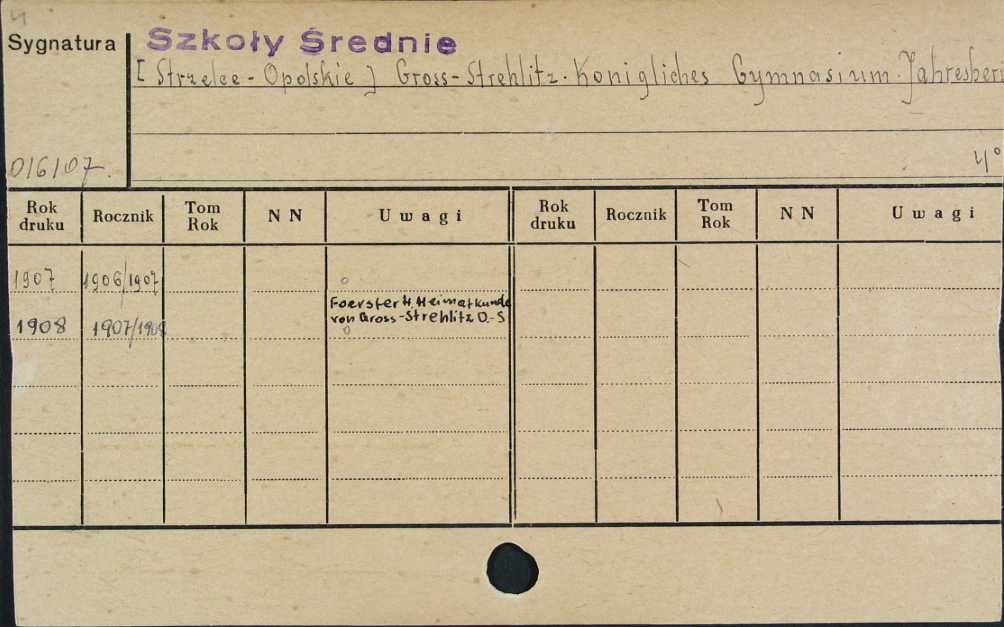 4
Sygnatura
Szkoły Średnie
[Strzelce-Opolskie] Gross-Strehlitz. Konigliches Gymnasium. Jahresberi
016/07.
4°
Rok druku Rocznik Tom Rok N N Uwagi Rok druku Rocznik Tom Rok N N Uwagi
1907 1906/1907
Foerster H. Heimatkunde
1908 1907/1908 von Gross-Strehlitz O.-S